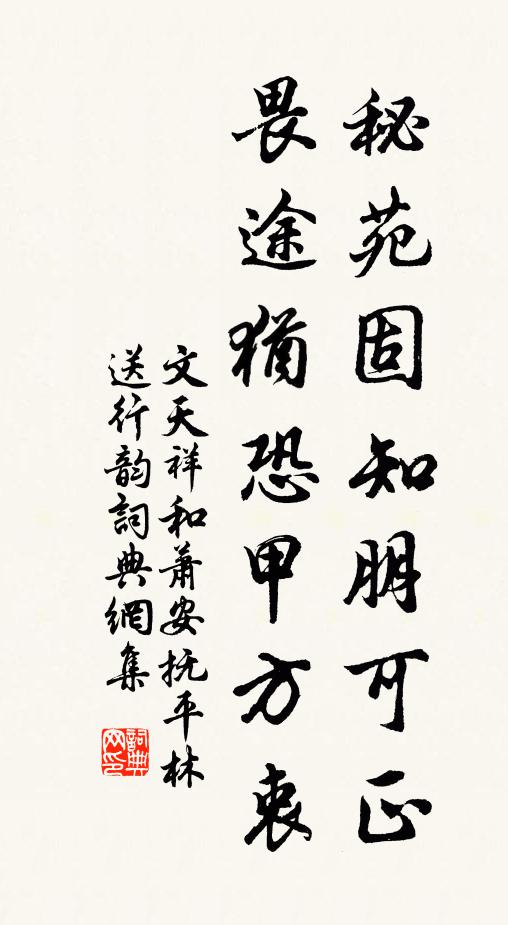 秘苑固知朋可正
畏途猶恐甲方衷
文天祥和萧安抚平林
送行韵詞典網集
詞典网印